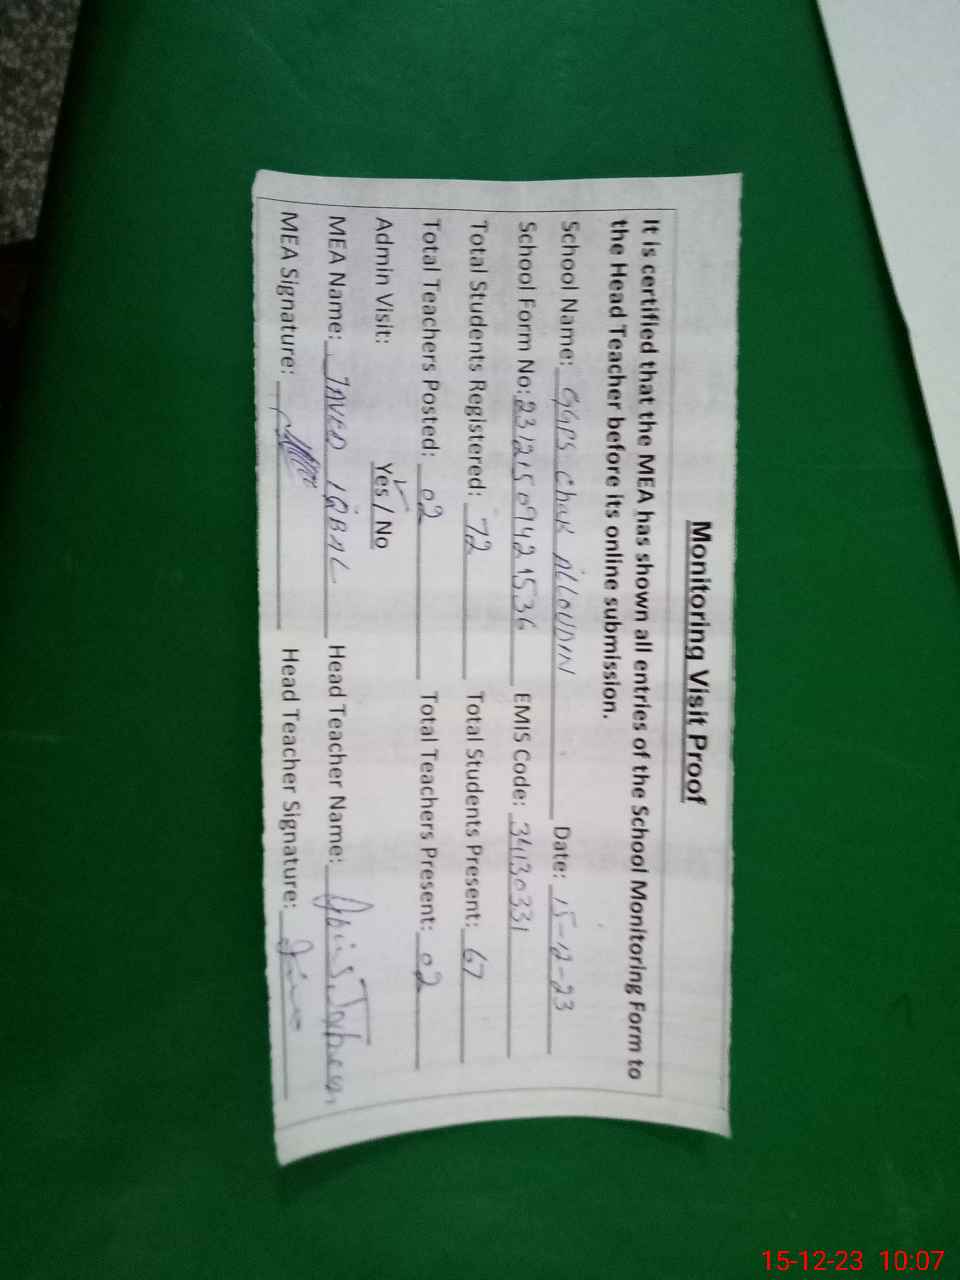 Monitoring Visit Proof
It is certified that the MEA has shown all entries of the School Monitoring Form to
the Head Teacher before its online submission.
School Name: GGPS Chak ALLOUDIN Date: 15-12-23
School Form No: 231215094421536 EMIS Code: 34130331
Total Students Registered: 72 Total Students Present: 67
Total Teachers Posted: 02 Total Teachers Present: 02
Admin Visit: Yes / No
MEA Name: JAVED IQBAL Head Teacher Name:
MEA Signature: Head Teacher Signature:
15-12-23 10:07